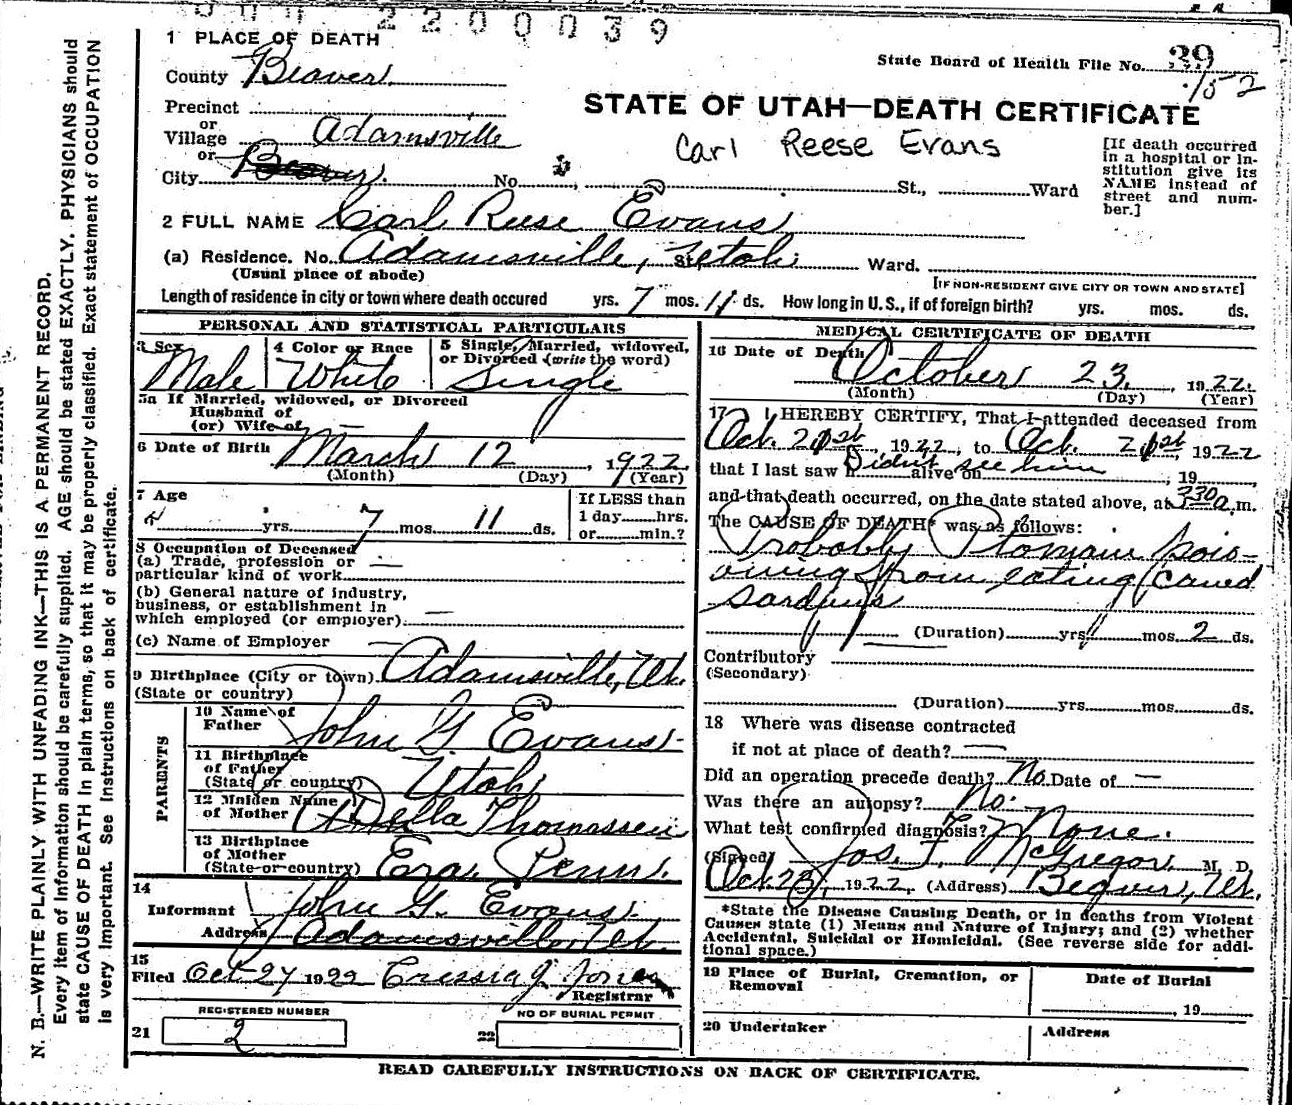 2200039
1 PLACE OF DEATH
County Beaver.
State Board of Health File No. 39
152
Precinct
or
Village Adamsville
or
City Beaver. No. St., Ward
STATE OF UTAH—DEATH CERTIFICATE
Carl Reese Evans
[If death occurred
in a hospital or in-
stitution give its
NAME instead of
street and num-
ber.]
2 FULL NAME Carl Reese Evans
(a) Residence. No. Adamsville, St. Utah Ward.
(Usual place of abode)
[IF NON-RESIDENT GIVE CITY OR TOWN AND STATE]
Length of residence in city or town where death occured yrs. 7 mos. 11 ds. How long in U.S., if of foreign birth? yrs. mos. ds.
PERSONAL AND STATISTICAL PARTICULARS
3 Sex
Male
4 Color or Race
White
5 Single, Married, widowed,
or Divorced (write the word)
Single
5a If Married, widowed, or Divorced
Husband of
(or) Wife of —
6 Date of Birth March 12, 1922
(Month) (Day) (Year)
7 Age
yrs. 7 mos. 11 ds.
If LESS than
1 day hrs.
or min.?
8 Occupation of Deceased
(a) Trade, profession or —
particular kind of work
(b) General nature of industry,
business, or establishment in —
which employed (or employer)
(c) Name of Employer —
9 Birthplace (City or town) Adamsville, Ut.
(State or country)
PARENTS
10 Name of
Father John G. Evans
11 Birthplace
of Father Utah
(State or country)
12 Maiden Name
of Mother Della Thomassen
13 Birthplace
of Mother
(State or country)
14
Informant John G. Evans
Address Adamsville Ut.
15
Filed Oct 27 1922 Cressia J. Jones
Registrar
REGISTERED NUMBER
21 2
NO OF BURIAL PERMIT
22
MEDICAL CERTIFICATE OF DEATH
16 Date of Death October 23, 1922.
(Month) (Day) (Year)
17 I HEREBY CERTIFY, That I attended deceased from
Oct. 21st, 1922, to Oct. 21st, 1922
that I last saw h Didnt see him alive on , 19
and that death occurred, on the date stated above, at 330 a.m.
The CAUSE OF DEATH* was as follows:
Probably Ptomain pois-
oning from eating caned
sardines
(Duration) yrs. mos. 2 ds.
Contributory
(Secondary)
(Duration) yrs. mos. ds.
18 Where was disease contracted
if not at place of death? —
Did an operation precede death? No. Date of —
Was there an autopsy? No.
What test confirmed diagnosis? None.
(Signed) Jos. T. McGregor, M. D.
Oct. 23, 1922, (Address) Beaver, Ut.
*State the Disease Causing Death, or in deaths from Violent
Causes state (1) Means and Nature of Injury; and (2) whether
Accidental, Suicidal or Homicidal. (See reverse side for addi-
tional space.)
19 Place of Burial, Cremation, or
Removal
Date of Burial
, 19
20 Undertaker
Address
READ CAREFULLY INSTRUCTIONS ON BACK OF CERTIFICATE.
N. B.—WRITE PLAINLY WITH UNFADING INK—THIS IS A PERMANENT RECORD.
Every item of information should be carefully supplied. AGE should be stated EXACTLY. PHYSICIANS should
state CAUSE OF DEATH in plain terms, so that it may be properly classified. Exact statement of OCCUPATION
is very important. See Instructions on back of certificate.